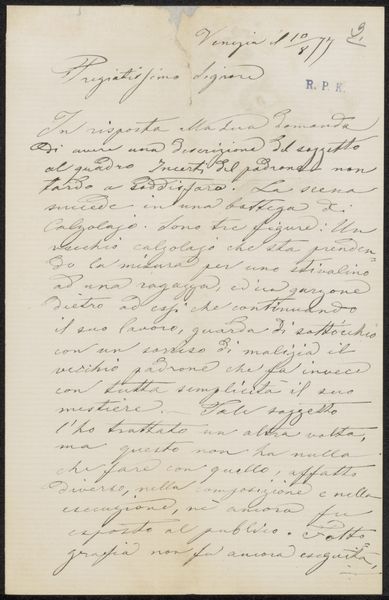 Venezia il 10/8 77
Pregiatissimo Signore
R. P. K.
In risposta alla di Lei domanda
di avere una descrizione del soggetto
al quadro Incerti del padrone non
tardo a soddisfare. La scena
succede in una bottega di
Calzolajo. Sono tre figure: Un
vecchio calzolajo che sta prenden-
do la misura per uno stivalino
ad una ragazza, ed un garzone
dietro ad essi che continuando
il suo lavoro, guarda di sottocchio
con un sorriso di malizia il
vecchio padrone che fa invece
con tutta semplicità il suo
mestiere. — Tale soggetto
l'ho trattato un altra volta,
ma questo non ha nulla
che fare con quello, affatto
diverso, nella composizione e nella
esecuzione, nè ancora fu
esposto al publico. Fotto
grafia non fu ancora eseguita,